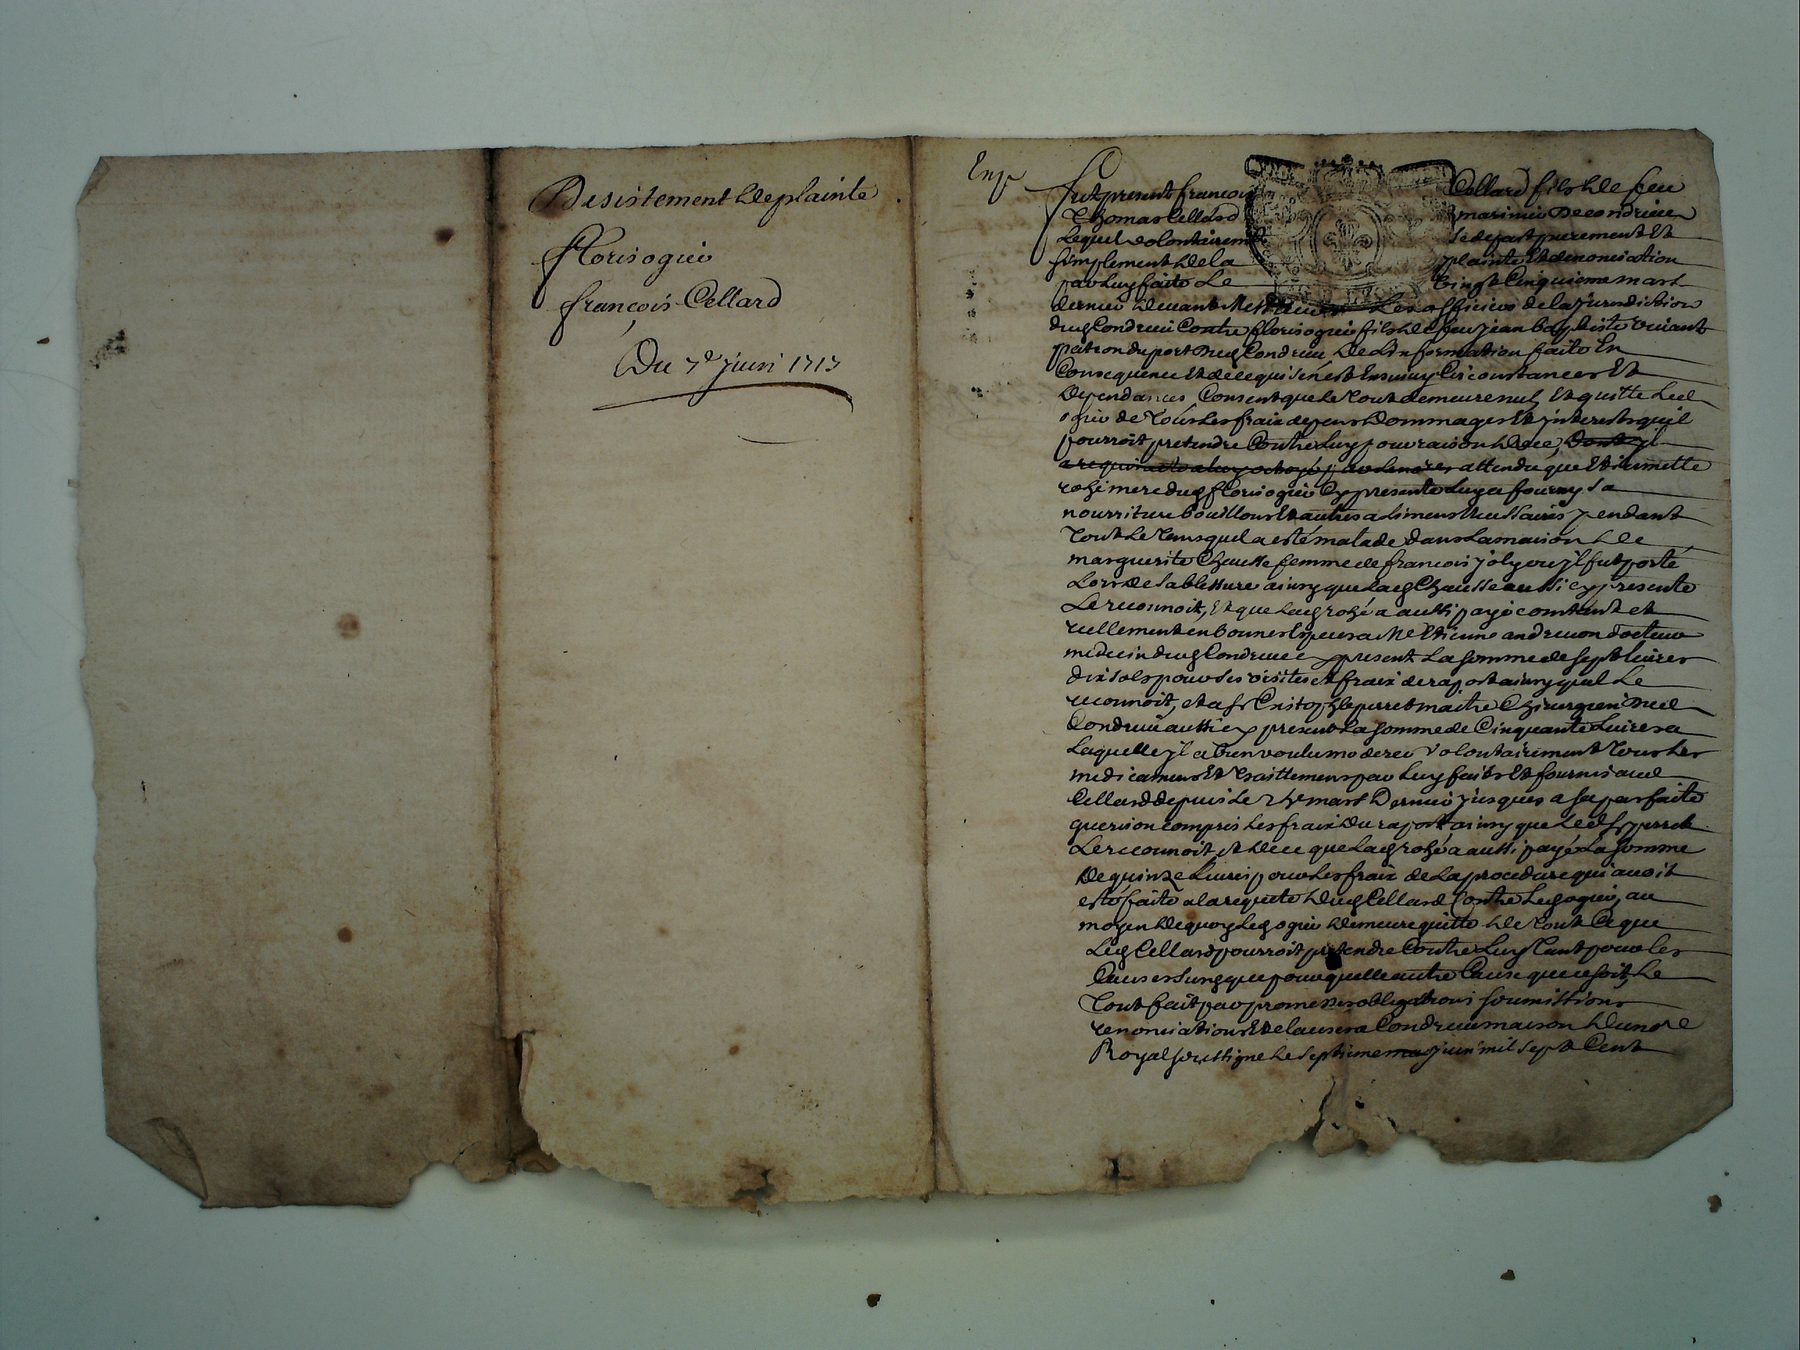 Desistement de plainte
floris ogier
françois Cellard
Du 7e juin 1713
Exp
fut present francois Cellard fils de feu
Thomas Cellard marinier de condrieu
Lequel volontairemt se depart purement Et
simplement de la plainte Et denonciation
par luy faite Le vingt Cinquieme mars
dernier devant Les officiers de la jurisdiction
dud Condrieu Contre floris ogier fils de feu jean baptiste vivant
patron du port dud Condrieu, de L'information faite En
Consequence Et de ce qui s'en est Ensuivy Circonstances Et
Dependances, Consent que le tout demeure nul, Et quitte led
ogier de tous les fraix depens dommages Et jnterests qu'il
pourroit pretendre Contre luy pour raison de ce,
attendu que Etiennette
rozé mere dud floris ogier Cy presente Luy a fourny sa
nourriture bouillons Et autres alimens necessaires pendant
tout Le temps qu'il a esté malade dans La maison de
marguerite Chausse femme de francois joly ou jl fut porté
Lors de sa blessure ainsy que Lad Chausse aussi cy presente
Le reconnoit, Et que Lad rozé a aussi payé comptant et
reellement en bonnes Especes a Me Etienne andrevon docteur
medecin dud Condrieu cy present La somme de sept Livres
dix sols pour ses visites et fraix de raport ainsy qu'il Le
reconnoit, et a sr Cristophle perret maitre Chirurgien dud
Condrieu aussi cy present La somme de Cinquante Livres a
Laquelle jl a bien voulu moderer volontairement tous les
medicamens Et traittemens par Luy faits Et fournis aud
Cellard depuis Le mars Dernier jusques a sa parfaite
guerison compris Les fraix du raport ainsy que Led sr perret
Le reconnoit, Et de ce que Lad rozé a aussi payé La somme
de quinze Livres pour Les fraix de La procedure qui avoit
esté faite a la requete dud Cellard Contre Led ogier, au
moyen de quoy Led ogier demeure quitte de tout Ce que
Led Cellard pourroit pretendre Contre Luy tant pour les
Causes susd que pour quelle autre Cause que ce soit, Le
tout fait par promesses obligations soumissions
renonciations Et clauses a Condrieu maison du nore
Royal soussigne Le septieme juin mil sept Cent